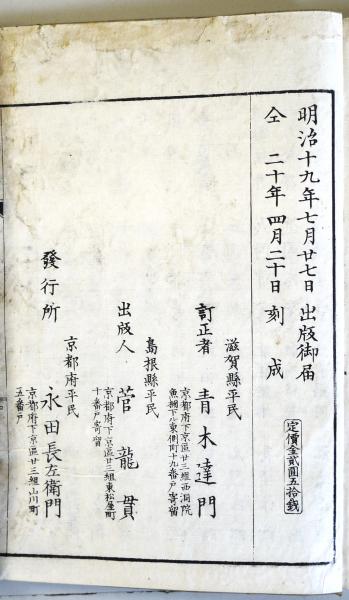 明治十九年七月廿七日出版御届
仝二十年四月二十日刻成
定價金貳圓五拾錢
滋賀縣平民
訂正者 青木達門
京都府下京區廿三組西洞院
魚棚下ル東側町十九番戸寄留
島根縣平民
出版人 菅龍貫
京都府下京區廿三組東松屋町
十番戸寄留
京都府平民
發行所 永田長左衛門
京都府下京區廿三組山川町
五番戸